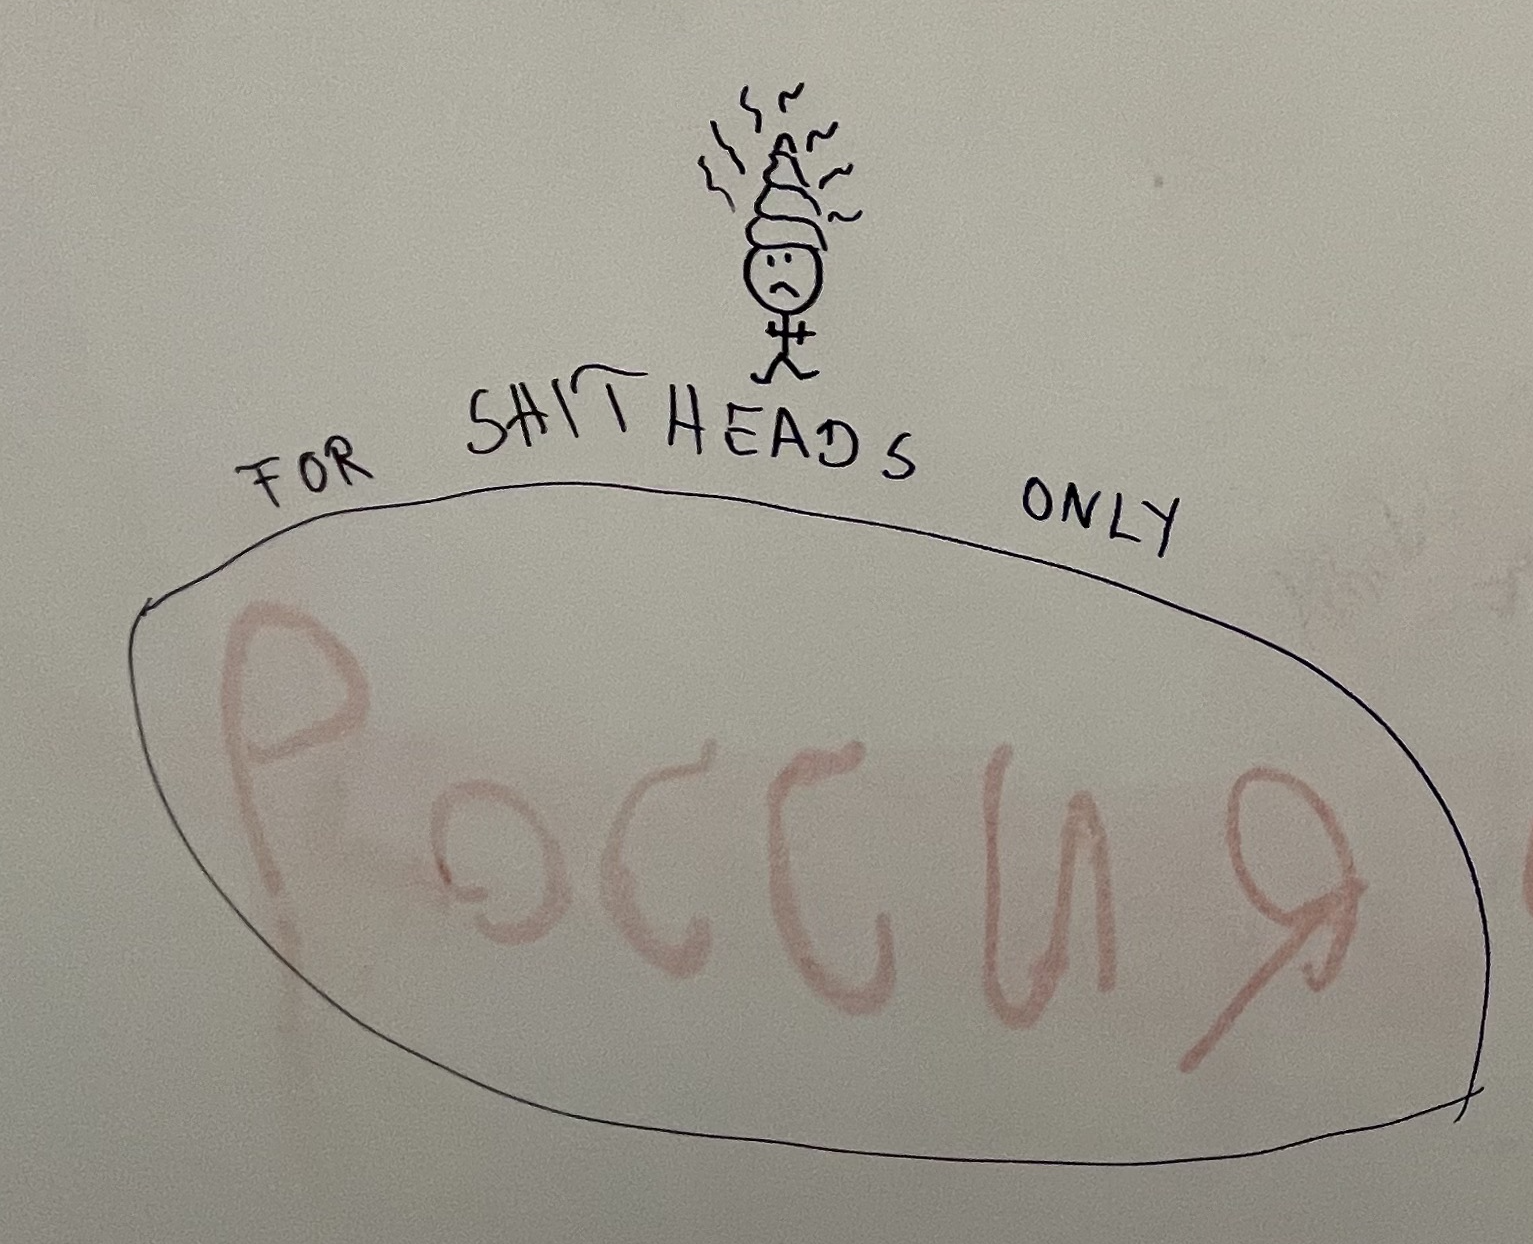 FOR SHITHEADS ONLY
Россия